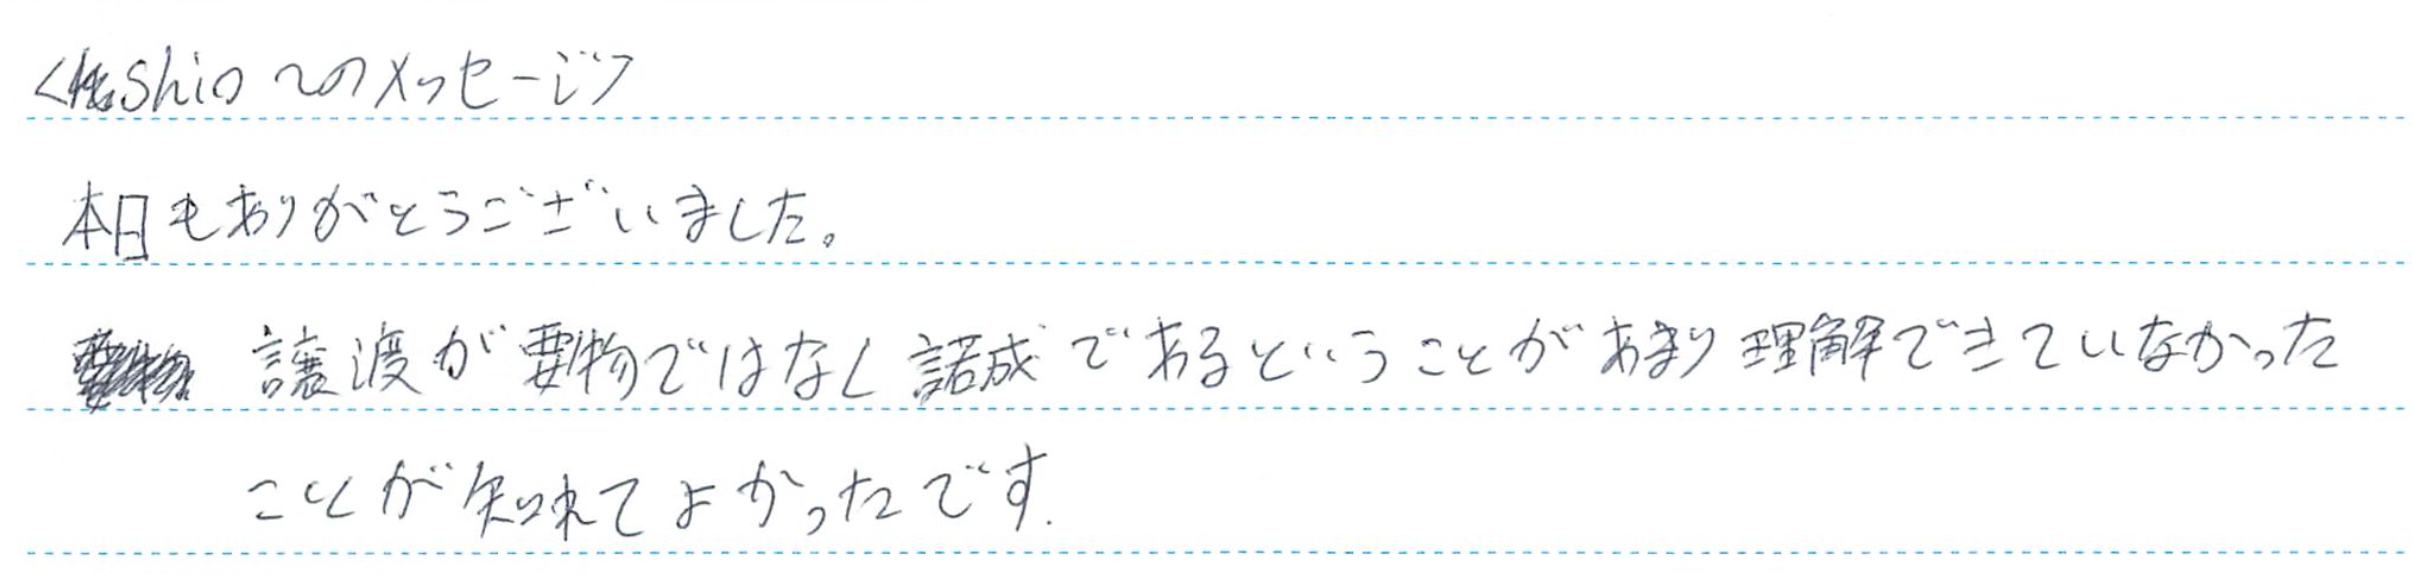 <Shioへのメッセージ>
本日もありがとうございました。
譲渡が要物ではなく諾成であるということがあまり理解できていなかった
ことが知れてよかったです.